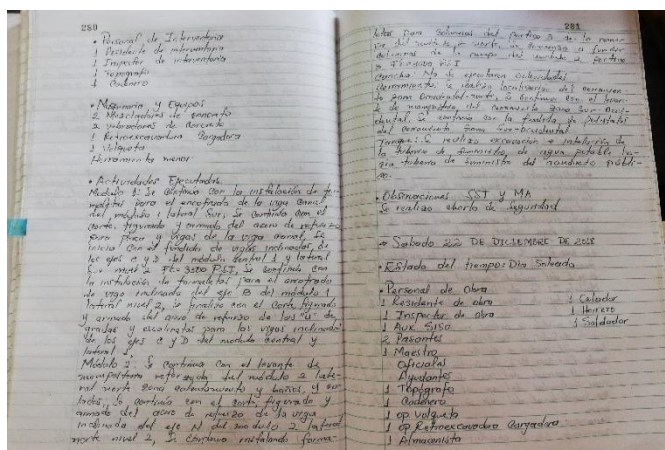 280
• Personal de Interventoria
1 Residente de interventoria
1 Inspector de interventoria
1 Topografo
1 Cadenero
• Maquinaria y Equipos
2 Mezcladoras de concreto
2 vibradores de concreto
1 Retroexcavadora Cargadora
1 Volqueta
Herramienta menor
• Actividades Ejecutadas.
Modulo 1: Se continua con la instalación de for-
maletas para el encofrado de la viga canal
del modulo 1 lateral sur, Se continua con el
corte, figurado y armado del acero de refuerzo
para vigas de la viga canal, Se
inicia con el fundido de vigas inclinadas de
los ejes c y D del modulo central y lateral
nivel 2 FC= 3500 PSI, Se continua con
la instalación de formaletas para el encofrado
de viga inclinada del eje B del módulo 1
lateral nivel 2, se finalizo con el corte, figurado
y armado del acero de refuerzo de las de
gradas y escalinatas para las vigas inclinadas
de los ejes c y D del modulo central y
lateral 1.
Módulo 2: Se continua con el levante de
mamposteria reforzada del módulo 2 late-
ral norte zona calentamiento y baños, y
lados, Se continua con el corte, figurado y
armado del acero de refuerzo de la viga
inclinada del eje N del modulo 2 lateral
norte nivel 2, Se continua instalando forma-
281
letas para columnas del portico B de la
norte, se fundir
columnas de la rampa del portico
PSI
Cancha: No se ejecutaron actividades
Cerramiento: se realizo localización del cerramien-
to zona Occidental-norte, Se continua con el levan-
te de mamposteria del cerramiento zona Sur-Occi-
dental, Se continua con la fundida de pedestales
del cerramiento zona Sur-occidental
Tanque: Se realizo excavación e instalación de
la tuberia de suministro de agua potable
tuberia de suministro del acueducto públi-
co.
• Observaciones SST y MA
Se realizo charla de seguridad
Sabado 22 DE DICIEMBRE DE 2018
• Estado del tiempo: Dia Soleado
• Personal de Obra
1 Residente de obra
1 Celador
1 Inspector de obra
1 Herrero
1 Aux. SISO
1 Soldador
2 Pasantes
1 Maestro
Oficiales
Ayudantes
1 Topógrafo
1 Cadenero
1 op Volqueta
1 op Retroexcavadora Cargadora
1 Almacenista